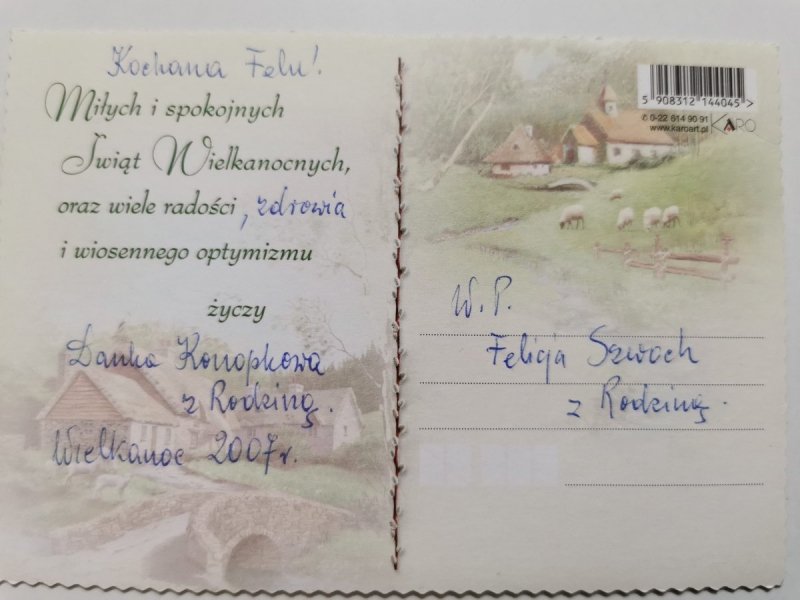 Kochana Felu!
Miłych i spokojnych
Świąt Wielkanocnych,
oraz wiele radości, zdrowia
i wiosennego optymizmu
życzy
Danka Konopkowa
z Rodziną.
Wielkanoc 2007 r.
5 908312 144045 >
✆ 0-22 614 90 91
www.karoart.pl
KARO
W. P.
Felicja Szwoch
z Rodziną.